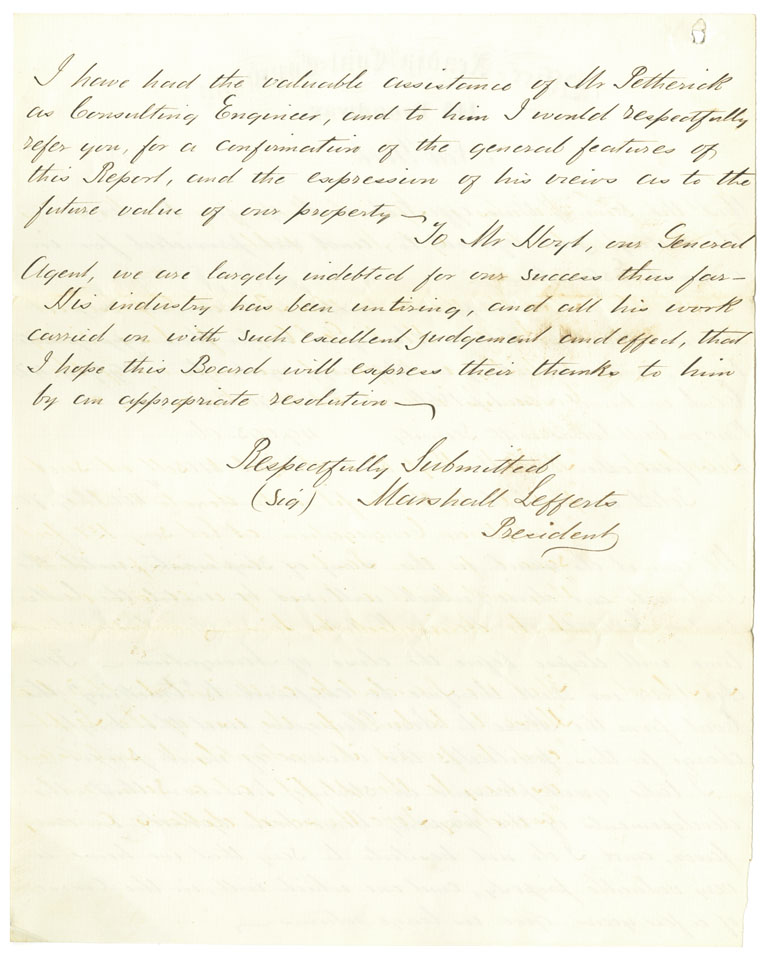 I have had the valuable assistance of Mr Petherick
as Consulting Engineer, and to him I would respectfully
refer you, for a confirmation of the general features of
this Report, and the expression of his views as to the
future value of our property —
To Mr Hoyt, our General
Agent, we are largely indebted for our success thus far —
His industry has been untiring, and all his work
carried on with such excellent judgement and effect, that
I hope this Board will express their thanks to him
by an appropriate resolution —
Respectfully Submitted
(Sig) Marshall Lefferts
President